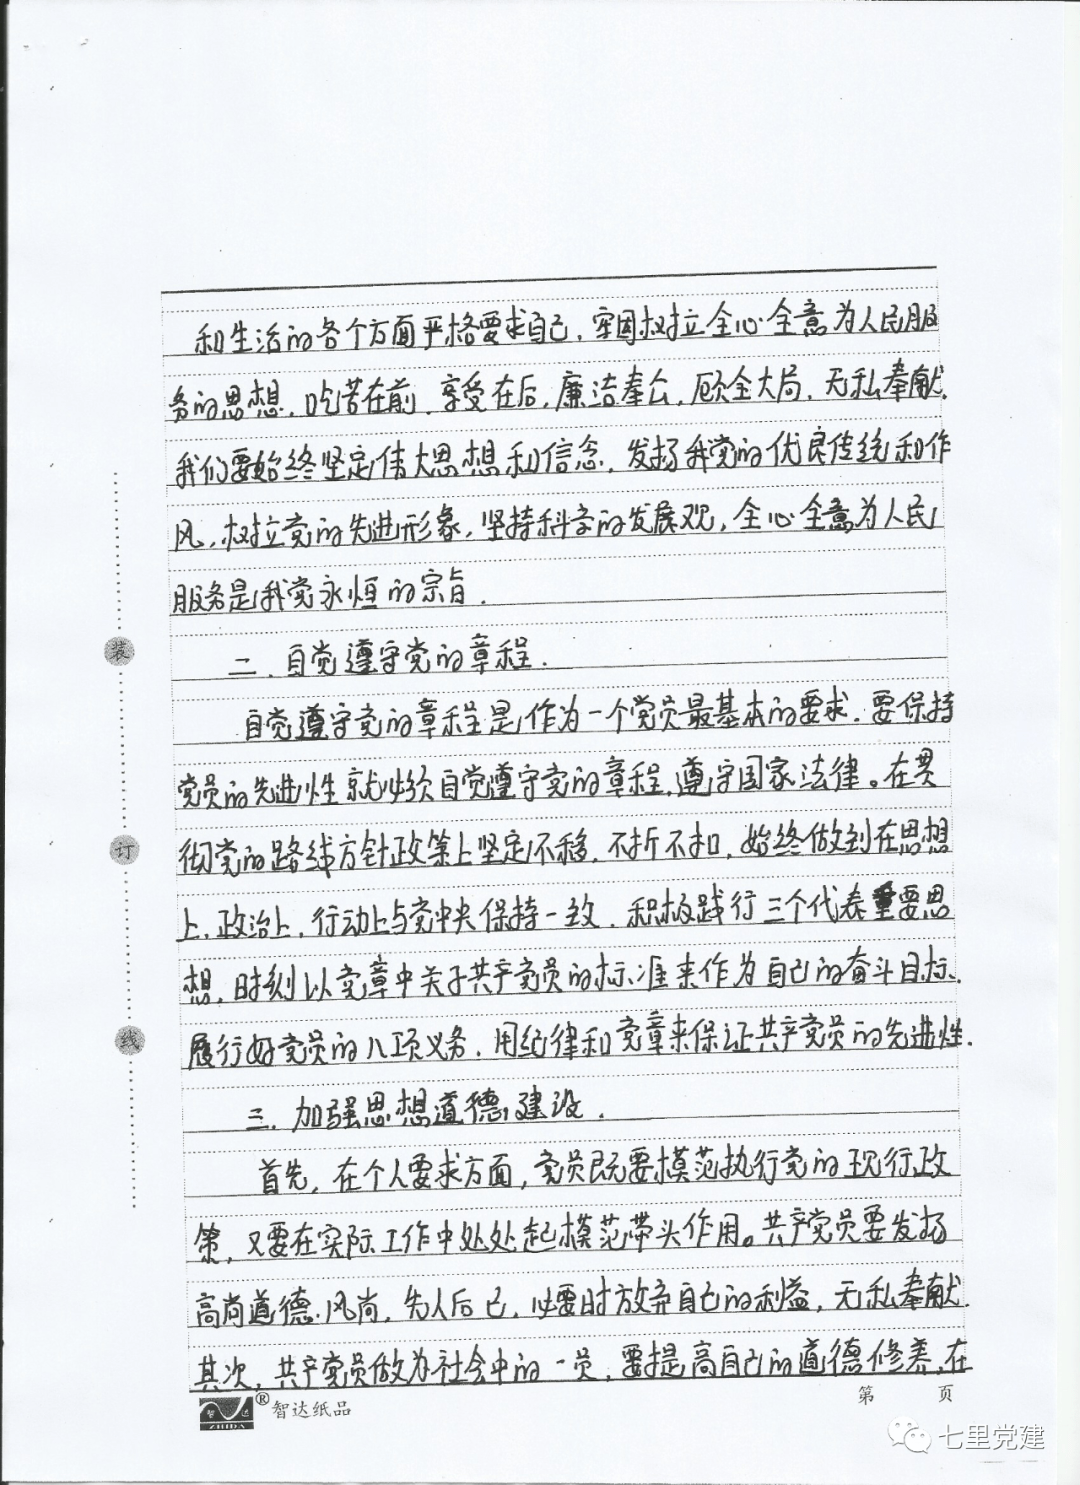 和生活的各个方面严格要求自己，牢固树立全心全意为人民服
务的思想，吃苦在前，享受在后，廉洁奉公，顾全大局，无私奉献，
我们要始终坚定伟大思想和信念，发扬我党的优良传统和作
风，树立党的先进形象，坚持科学的发展观，全心全意为人民
服务是我党永恒的宗旨．
二．自觉遵守党的章程．
自觉遵守党的章程是作为一个党员最基本的要求．要保持
党员的先进性就必须自觉遵守党的章程，遵守国家法律。在贯
装
彻党的路线方针政策上坚定不移，不折不扣，始终做到在思想
订
上，政治上，行动上与党中央保持一致，积极践行三个代表重要思
想，时刻以党章中关于共产党员的标准来作为自己的奋斗目标．
线
履行好党员的八项义务，用纪律和党章来保证共产党员的先进性．
三．加强思想道德建设．
首先，在个人要求方面，党员既要模范执行党的现行政
策，又要在实际工作中处处起模范带头作用。共产党员要发扬
高尚道德风尚，先人后己，必要时放弃自己的利益，无私奉献．
其次，共产党员做为社会中的一员，要提高自己的道德修养，在
智达 ZHIDA ® 智达纸品 第 页
七里党建